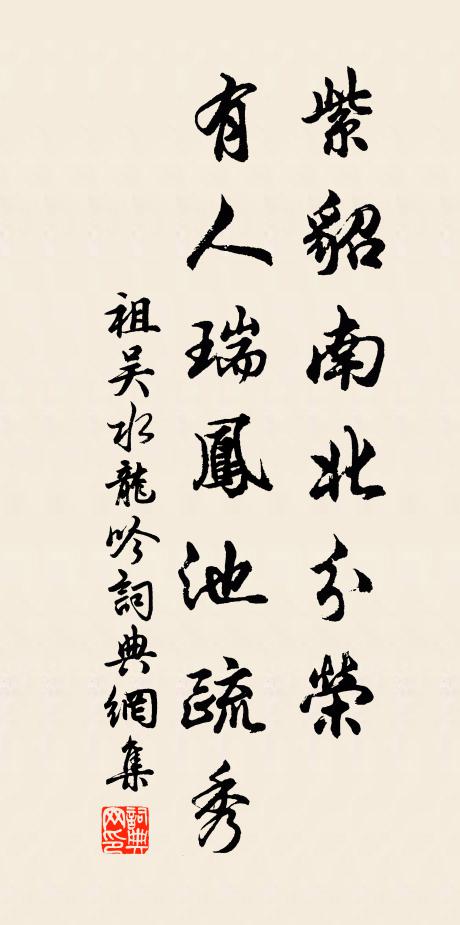 紫貂南北分榮
有人瑞鳳池疏秀
祖吴水龍吟詞典網集
詞典网印